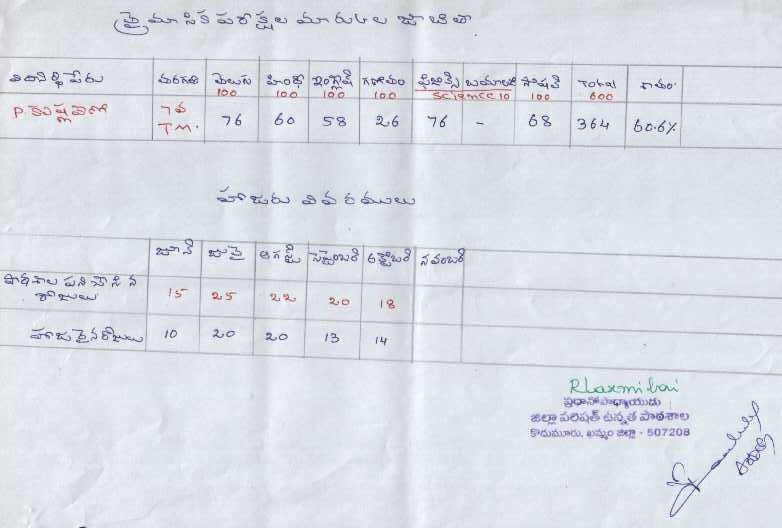 త్రైమాసిక పరీక్షల మార్కుల జాబితా.
విద్యార్థి పేరు తరగతి తెలుగు హింది ఇంగ్లీష్ గణితం ఫిజిక్స్ బయాలజీ సోషల్ Total శాతం
100 100 100 100 Science 10 100 600
P. 7వ 76 60 58 26 76 - 68 364 60.6%
T.M.
హాజరు వివరములు
జూన్ జులై ఆగష్ట్ సెప్టెంబర్ అక్టోబర్ నవంబర్
పాఠశాల పనిచేసిన
రోజులు 15 25 22 20 18
హాజరైన రోజులు 10 20 20 13 14
R Laxmi bai
ప్రధానోపాధ్యాయుడు
జిల్లా పరిషత్ ఉన్నత పాఠశాల
కొదుమూరు, ఖమ్మం జిల్లా - 507208